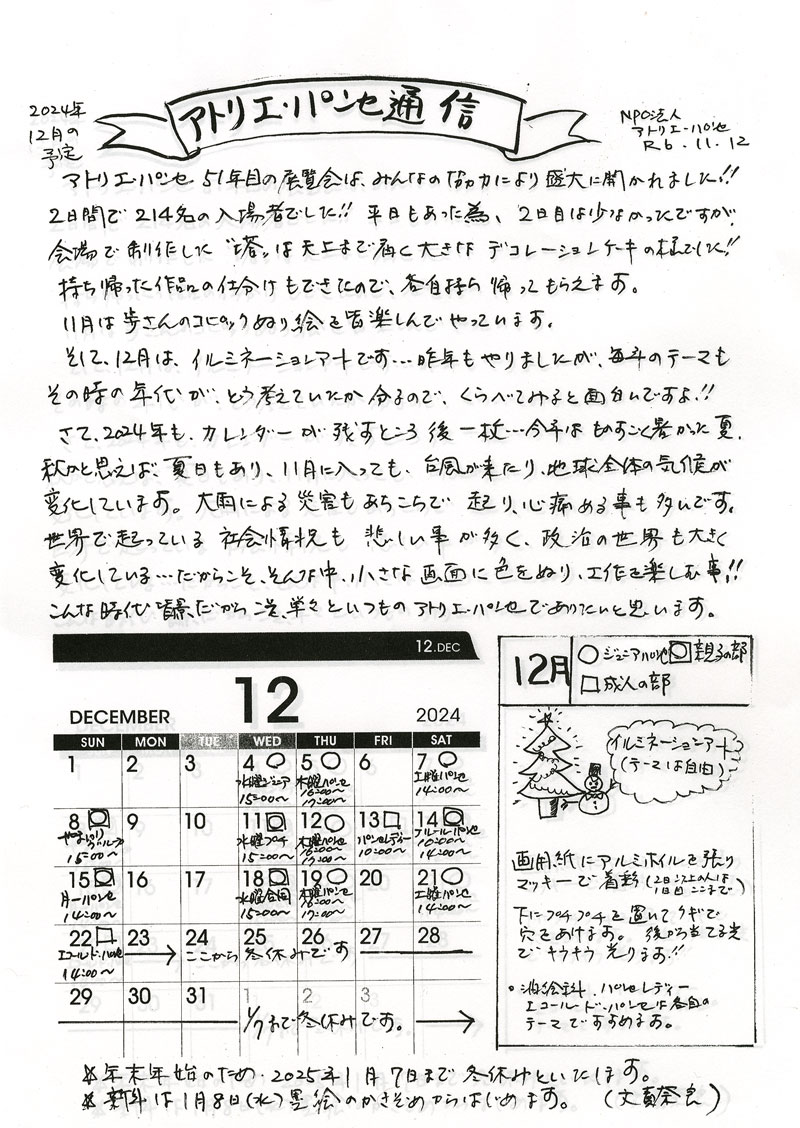 2024年
12月の
予定
アトリエ・パンセ通信
NPO法人
アトリエ・パンセ
R6.11.12
アトリエ・パンセ 51年目の展覧会は、みんなの協力により盛大に開かれました!!
2日間で214名の入場者でした!! 平日もあった為、2日目は少なかったですが、
会場で制作した“塔”は天上まで届く大きなデコレーションケーキの様でした!!
持ち帰った作品の仕分けもできたので、各自持ち帰ってもらえます。
11月は歩さんのコピックぬり絵を皆楽しんでやっています。
そして、12月は、イルミネーションアートです…昨年もやりましたが、毎年のテーマも
その時の年代が、どう考えていたか分るので、くらべてみると面白いですよ!!
さて、2024年も、カレンダーが残すところ後一枚…今年はものすごく暑かった夏、
秋かと思えば、夏日もあり、11月に入っても、台風が来たり、地球全体の気候が
変化しています。大雨による災害もあちらこちらで起り、心痛める事も多いです。
世界で起っている社会情況も悲しい事が多く、政治の世界も大きく
変化している…だからこそ、そんな中、小さな画面に色をぬり、工作を楽しむ事!!
こんな時代背景だからこそ、単々といつものアトリエ・パンセでありたいと思います。
12.DEC
DECEMBER 12 2024
SUN MON TUE WED THU FRI SAT
1 2 3 4 5 6 7
水曜ジュニア 木曜パンセ 土曜パンセ
15:00〜 16:00〜 14:00〜
17:00〜
8 9 10 11 12 13 14
水曜プチ 木曜パンセ パンセレディー アルールパンセ
15:00〜 15:00〜 16:00〜 10:00〜 10:00〜
17:00〜 14:00〜
15 16 17 18 19 20 21
月一パンセ 水曜合同 木曜パンセ 土曜パンセ
14:00〜 15:00〜 16:00〜 14:00〜
17:00〜
22 23 24 25 26 27 28
エコールド・パンセ ここから冬休みです
14:00〜
29 30 31 1 2 3
1/7まで冬休みです。
12月 ジュニアパンセ 親子の部
成人の部
イルミネーションアート
(テーマは自由)
画用紙にアルミホイルを張り
マッキーで着彩
下にプチプチを置いてクギで
穴をあけます。後から当てる光
でキラキラ光ります!!
・油絵科、パンセレディー
エコールド・パンセは各自の
テーマですすめます。
※年末年始のため、2025年1月7日まで冬休みといたします。
※新年は1月8日(水)墨絵のかきぞめからはじめます。